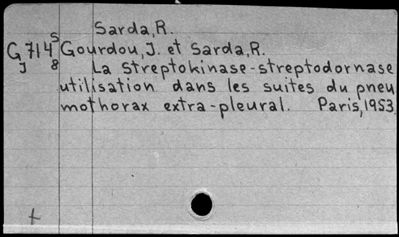 Sarda, R.
G714 S Gourdou, J. et Sarda, R.
J 8 La Streptokinase-streptodornase
utilisation dans les suites du pneu
mothorax extra-pleural. Paris, 1953.